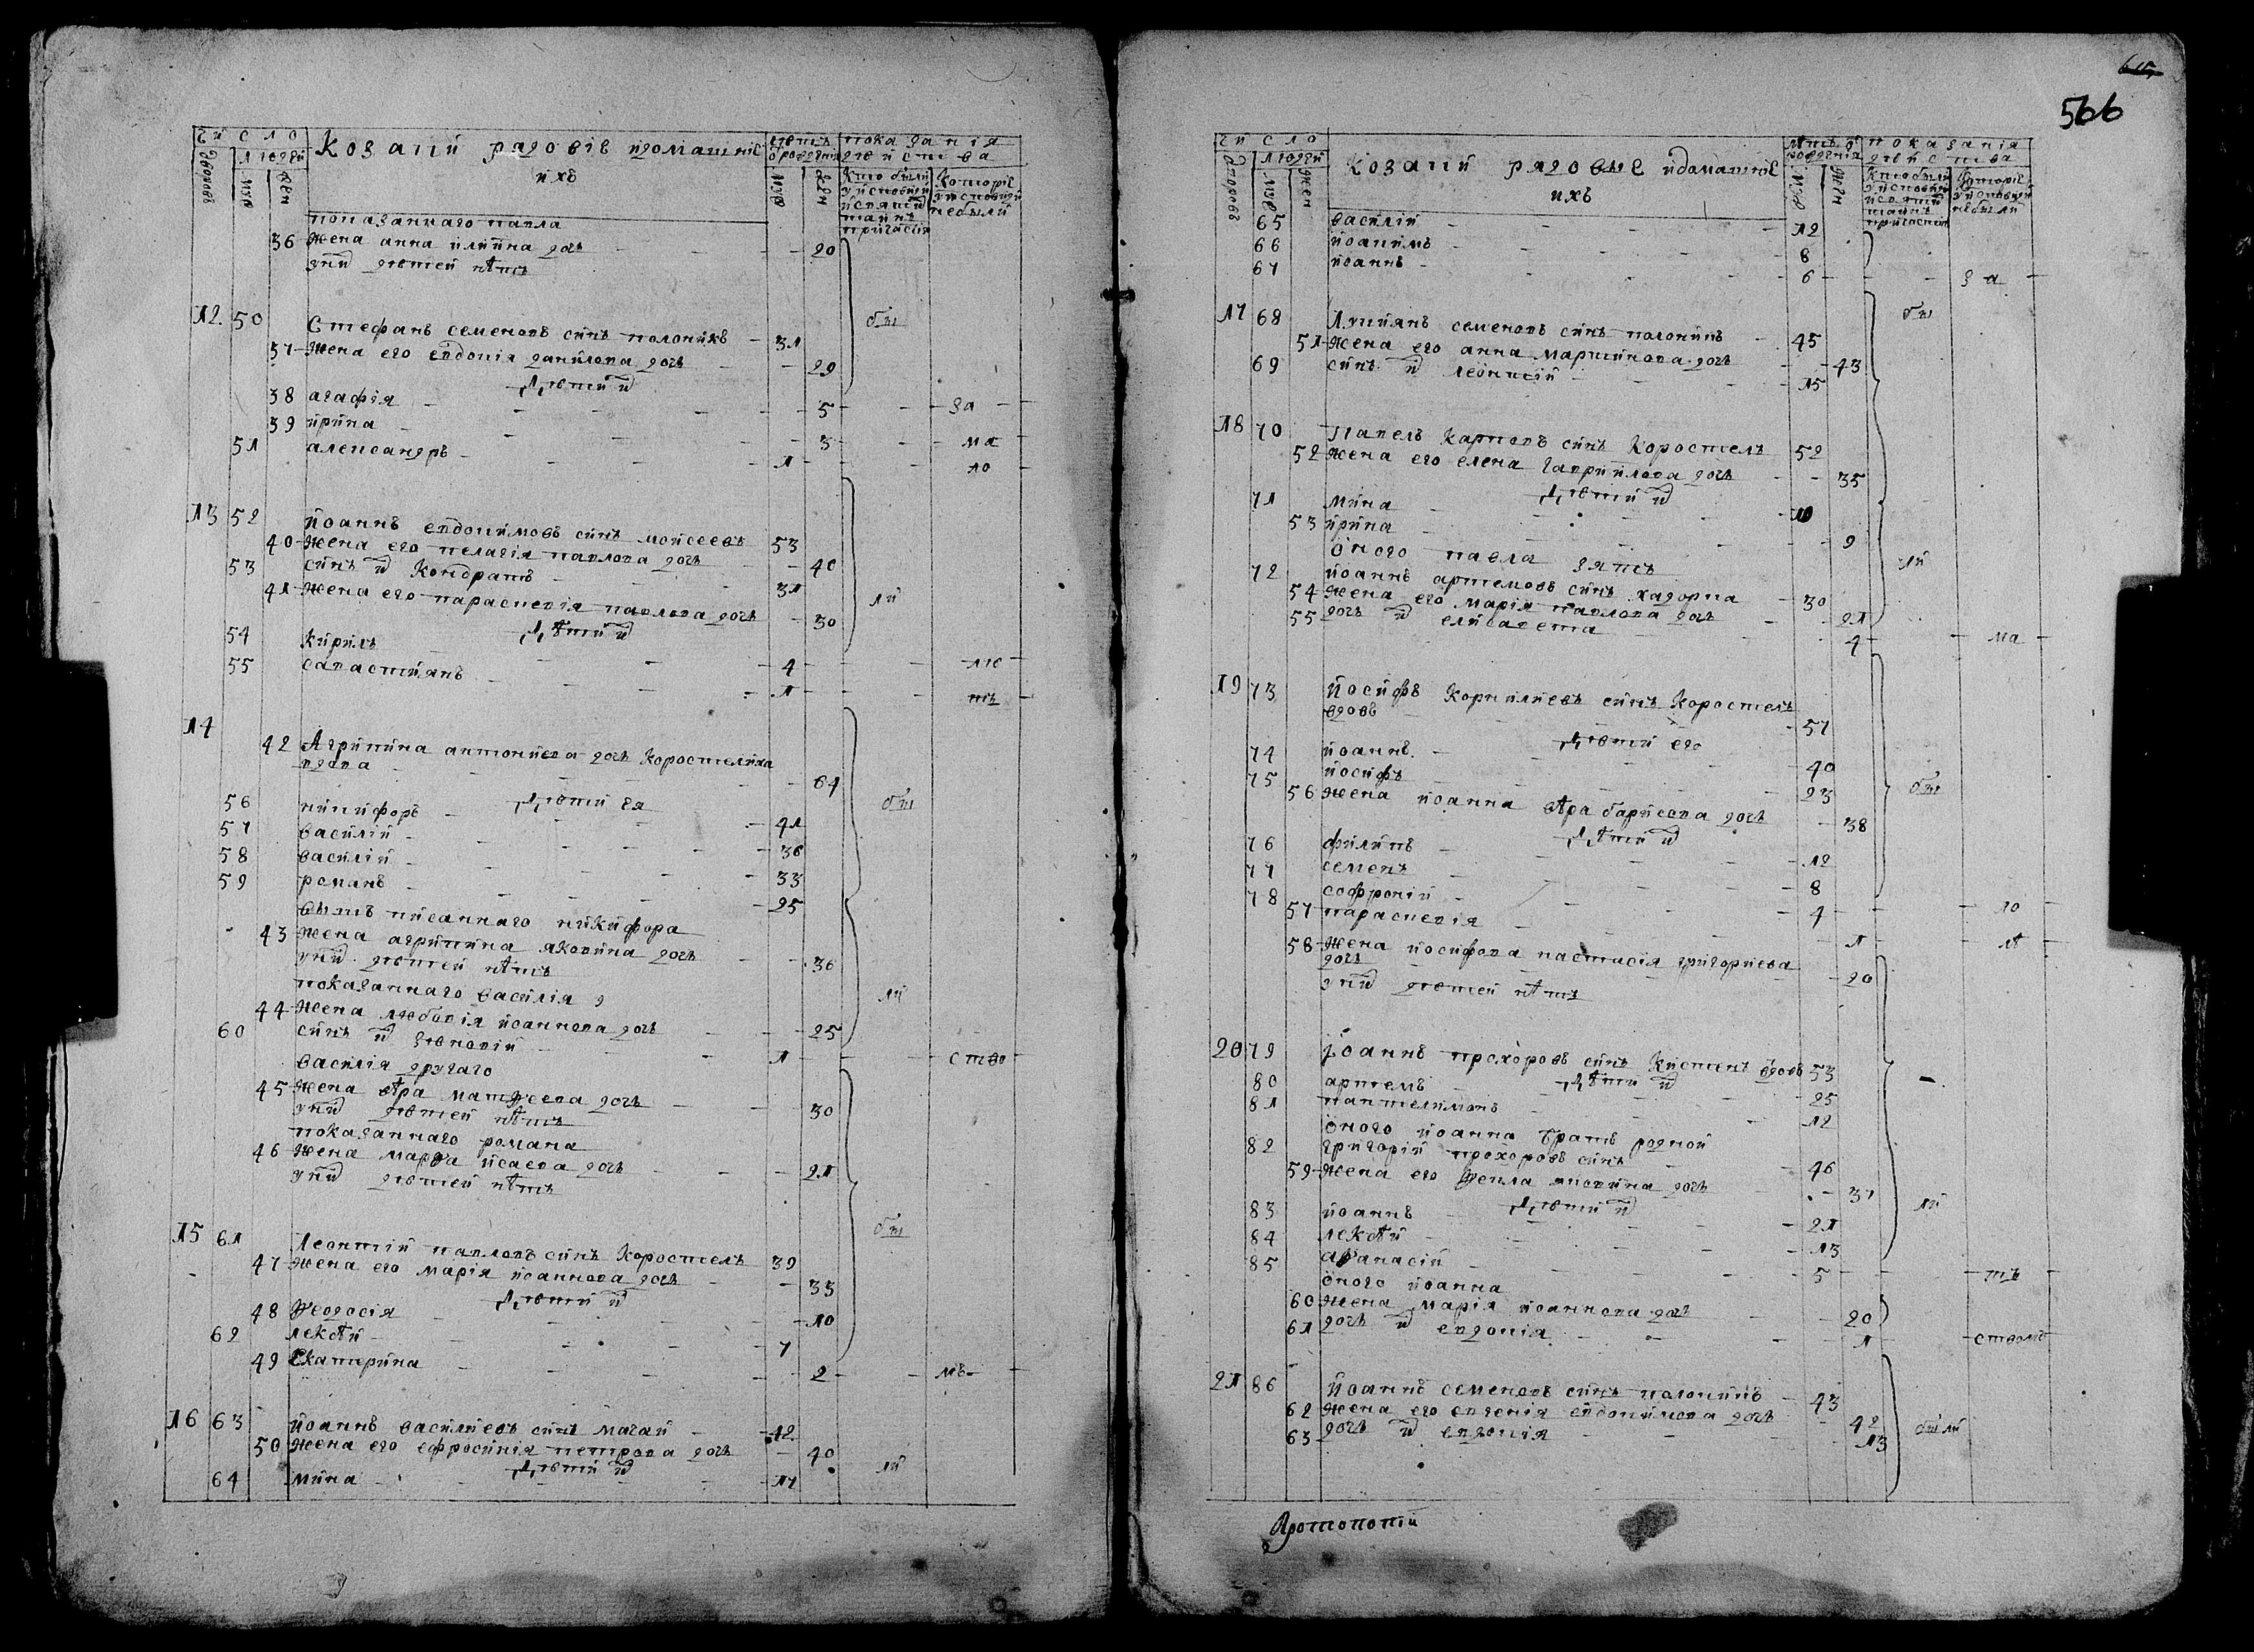 чи с л о
дворовъ
людей
муж
жен
Козаки рядовіе идомашніе
ихъ
лѣтъ
от рождения
муж
жен
показанія
дѣйства
Кто были
уисповеди
исвятих
таинъ
причастія
Которіе
уисповеди
небыли
показаннаго павла
36 жена анна илиина дочь - - - 20
унихъ дѣтей нѣтъ
12 50 Стефанъ семеновъ синъ полоникъ - 31 бы
37 жена его евдокія данилова дочь - - 29
дѣти ихъ
38 агафія - - - 5 - - за
39 ирина - - - 3 - - ма
51 александръ - - - 1 - - ло
13 52 иоаннъ евдокимовъ синъ моисеевъ 53
40 жена его пелагія павлова дочь - 40
53 синъ ихъ Кондратъ - - 31
41 жена его параскевія павлова дочь - 30 ли
дѣти ихъ
54 Кирилъ - - 4 - - лѣ
55 савастиянъ - - 1 - - тъ
14
42 Агрипина антониева дочь Коростелиха
вдова - - - 64
дѣти ея бы
56 никифоръ - - 41
57 василій - - 36
58 василій - - 33
59 романъ - - 25
више писаннаго никифора
43 жена агрипина яковина дочь - - 36
унихъ дѣтей нѣтъ
показаннаго василія
44 жена любовія иоаннова дочь - - 25 ли
60 синъ ихъ зѣновій - - 1 - - ство
василія другаго
45 жена ѣва матѳеева дочь - - 30
унихъ дѣтей нѣтъ
показаннаго романа
46 жена марѳа исаева дочь - - 21
унихъ дѣтей нѣтъ
15 61 Леонтій павловъ синъ Коростель 39 бы
47 жена его марія иоаннова дочь - - 33
дѣти ихъ
48 ѳеодосія - - - 10
62 лекѣй - - 7
49 Екатирина - - - 2 - - мъ
16 63 иоаннъ василиевъ синъ мачай - 42
50 жена его ефросинія петрова дочь - 40
дѣти ихъ ли
64 мина - - - 17
566
чи с л о
дворовъ
людей
муж
жен
Козаки рядовые идомашніе
ихъ
лѣтъ от
рожденія
муж
жен
показанія
дѣйства
Кто были
уисповеди
исвятих
таинъ
причастія
Которіе
уисповеди
небыли
65 василій - - - 12
66 иоакимъ - - - 8
67 иоаннъ - - - 6 - - за
17 68 Лукиянъ семеновъ синъ полоникъ - 45 бы
51 жена его анна мартинова дочь - - 43
69 синъ ихъ леонтій - - 15
18 70 Павелъ Карповъ синъ Коростель 52
52 жена его елена гавриилова дочь - - 35
дѣти ихъ
71 мина - - 10
53 ирина - - - 9
оного павла зять ли
72 иоаннъ артемовъ синъ - 30
54 жена его марія павлова дочь - - 21
55 дочь ихъ елисавета - - 4 - - ма
19 73 Иосифъ Корнилиевъ синъ Коростель
вдовъ - - 57
дѣти его
74 иоаннъ - - 40
75 иосифъ - - 23 бы
56 жена иоанна ѣва барисова дочь - 38
дѣти ихъ
76 филипъ - - 12
77 семенъ - - 8
78 софроній - - 4 - - ло
57 параскевія - - - 1 - - лѣ
58 жена иосифова настасія григориева
дочь - - 20
унихъ дѣтей нѣтъ
20 79 Іоаннъ прохоровъ синъ Кистень вдовъ 53
дѣти ихъ
80 артемъ - - 25
81 пантелимонъ - - 12
оного иоанна братъ родной
82 григорій прохоровъ синъ - 46
59 жена его ѳекла яковина дочь - - 37
дѣти ихъ ли
83 иоаннъ - - 21
84 лекѣй - - 13
85 аѳанасій - - 5 - - тъ
оного иоанна
60 жена марія иоаннова дочь - 20
61 дочь ихъ евдокія - - 1 - ствомъ
21 86 Иоаннъ семеновъ синъ полоникъ - 43
62 жена его евгенія евдокимова дочь - 42
63 дочь ихъ евдокія - - 13 были
Протопопъ